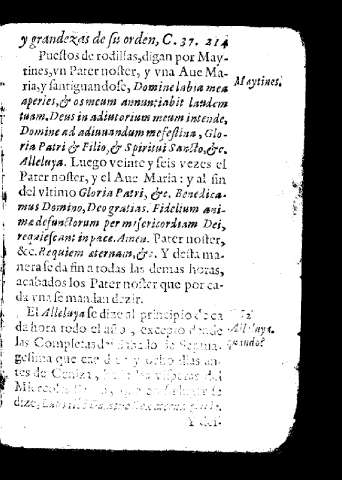 y grandezas de su orden, C. 37. 214
Puestos de rodillas, digan por May-
tines, vn Pater noster, y vna Aue Ma-
ria, y santiguandose, Domine labia mea
aperies, & os meum annuntiabit laudem
tuam. Deus in adiutorium meum intende,
Domine ad adiuuandum me festina, Glo-
ria Patri & Filio, & Spiritui Sancto, &c.
Alleluya. Luego veinte y seis vezes el
Pater noster, y el Aue Maria: y al fin
del vltimo Gloria Patri, &c. Benedica-
mus Domino, Deo gratias. Fidelium ani-
mæ defunctorum per misericordiam Dei,
requiescant in pace. Amen. Pater noster,
&c. Requiem æternam, &c. Y desta ma
nera se da fin a todas las demas horas,
acabados los Pater noster que por ca-
da vna se mandan dezir.
El Alleluya se dize al principio de ca
da hora todo el año, excepto desde
las Completas del Sabado de Septua-
gesima que cae diez y ocho dias an-
tes de Ceniza, las visperas del
Miercoles
dize,
Maytines.
Alleluya.
quando?